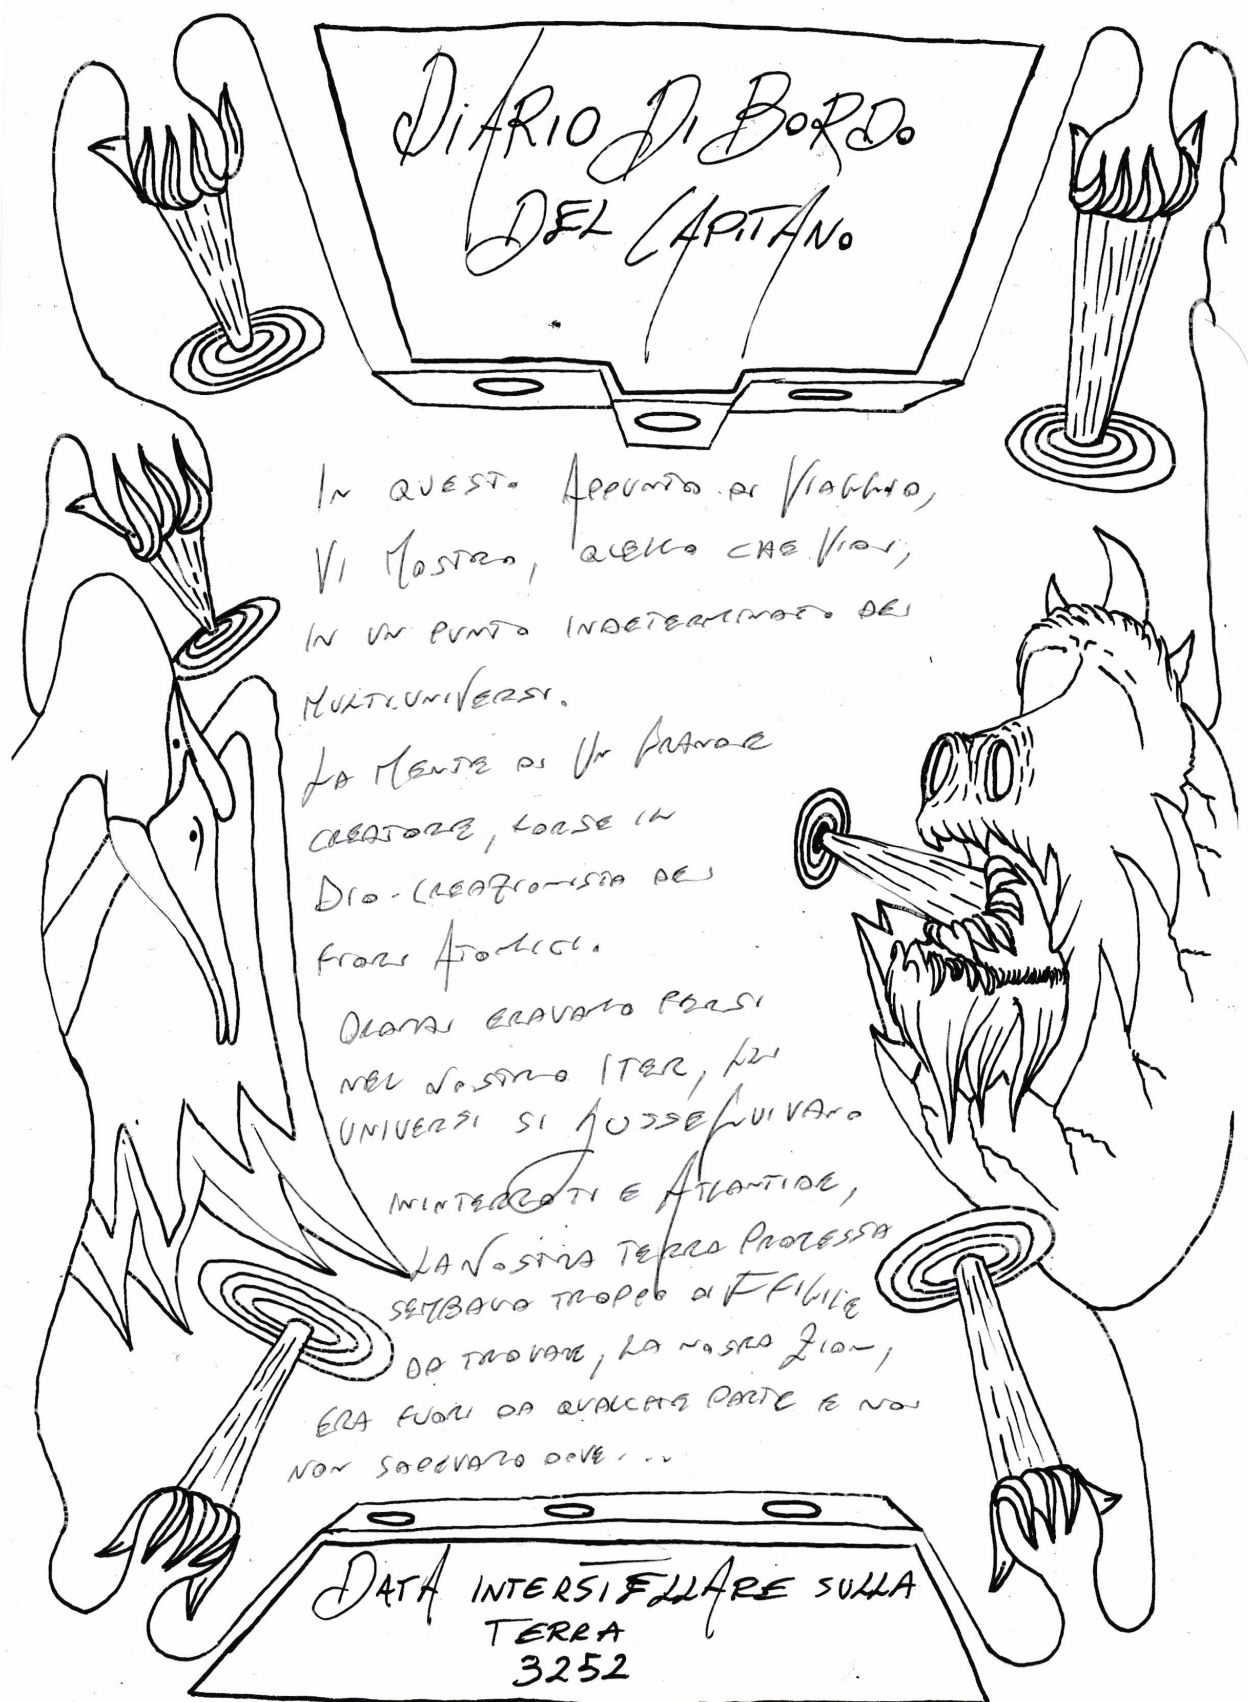 DIARIO DI BORDO
DEL CAPITANO
IN QUESTO APPUNTO DI VIAGGIO,
VI MOSTRO, QUELLO CHE VIDI,
IN UN PUNTO INDETERMINATO DEI
MULTI-UNIVERSI.
LA MENTE DI UN GRANDE
CREATORE, FORSE IL
DIO-CREAZIONISTA DEI
FIORI ATOMICI.
ORAMAI ERAVAMO PERSI
NEL NOSTRO ITER, GLI
UNIVERSI SI SUSSEGUIVANO
ININTERROTI E ATLANTIDE,
LA NOSTRA TERRA PROMESSA
SEMBAVA TROPPO DIFFICILE
DA TROVARE, LA NOSRA ZION,
ERA FUORI DA QUALCHE PARTE E NOI
NON SAPEVAMO DOVE...
DATA INTERSTELLARE SULLA
TERRA
3252